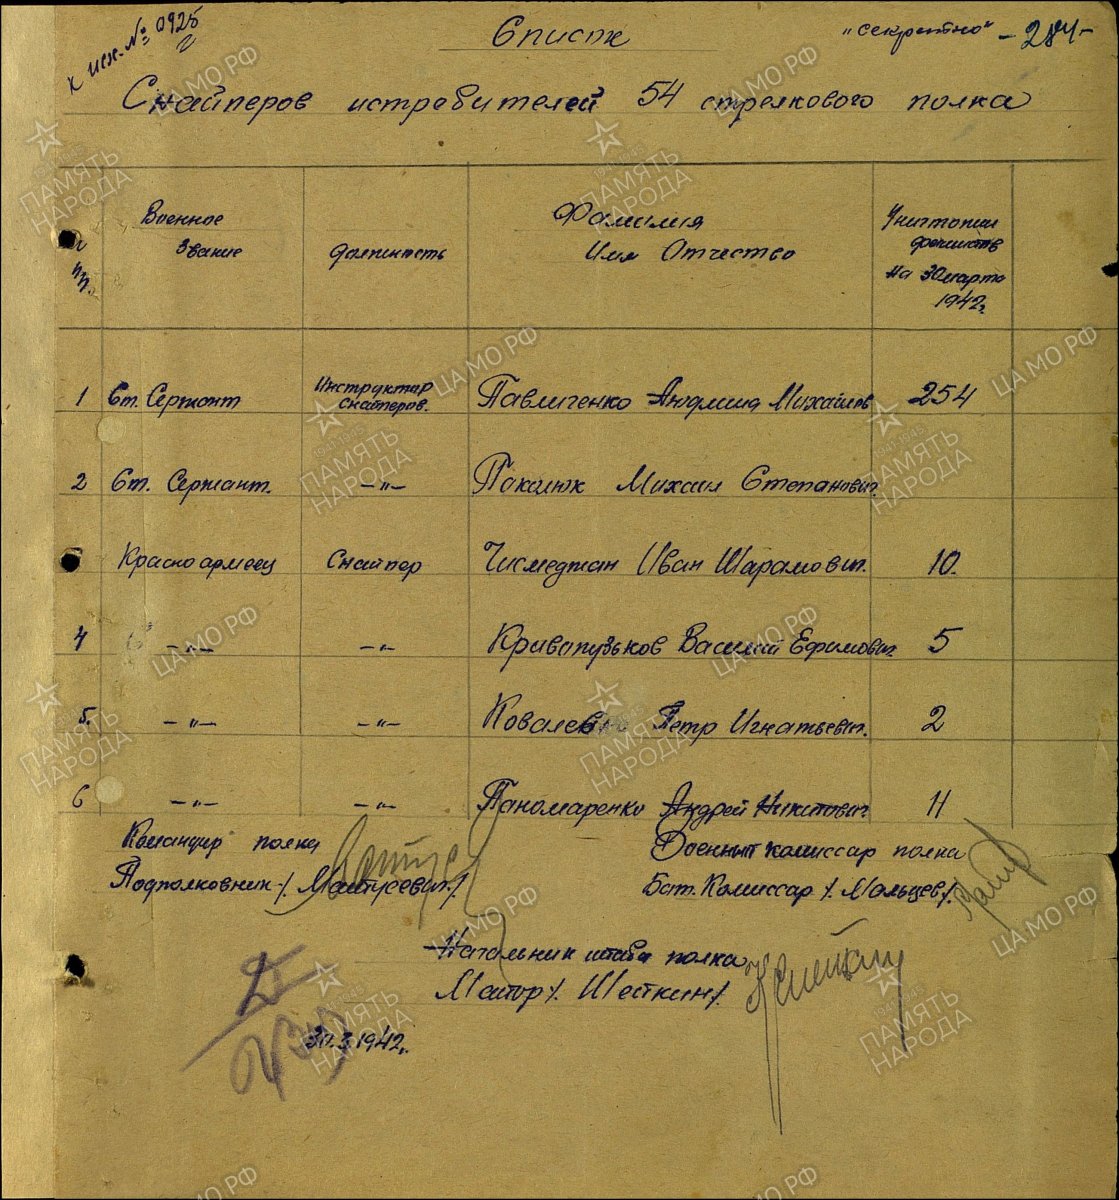 к исх. № 0925
"секретно" -284-
Список
Снайперов истребителей 54 стрелкового полка
Военное
Звание
Должность
Фамилия
Имя Отчество
фашистов
на 30 марта
1942г.
1 Ст. Сержант Инструктор Снайперов. Павличенко Людмила Михайлов 254
2 Ст. Сержант. -"- Михаил Степанович.
Красноармеец Снайпер Иван 10.
4 -"- -"- Василий Ефимович. 5
5. -"- -"- Петр Игнатьевич. 2
6 -"- -"- Пономаренко Андрей Никитович. 11
Командир полка
Военный комиссар полка
Подполковник /. Матусевич./.
Бат. Комиссар /. Мальцев/.
Начальник штаба полка
Майор /. Шесткин/.
30.3.1942г.
ЦАМО РФ
1941-1945
ПАМЯТЬ
НАРОДА